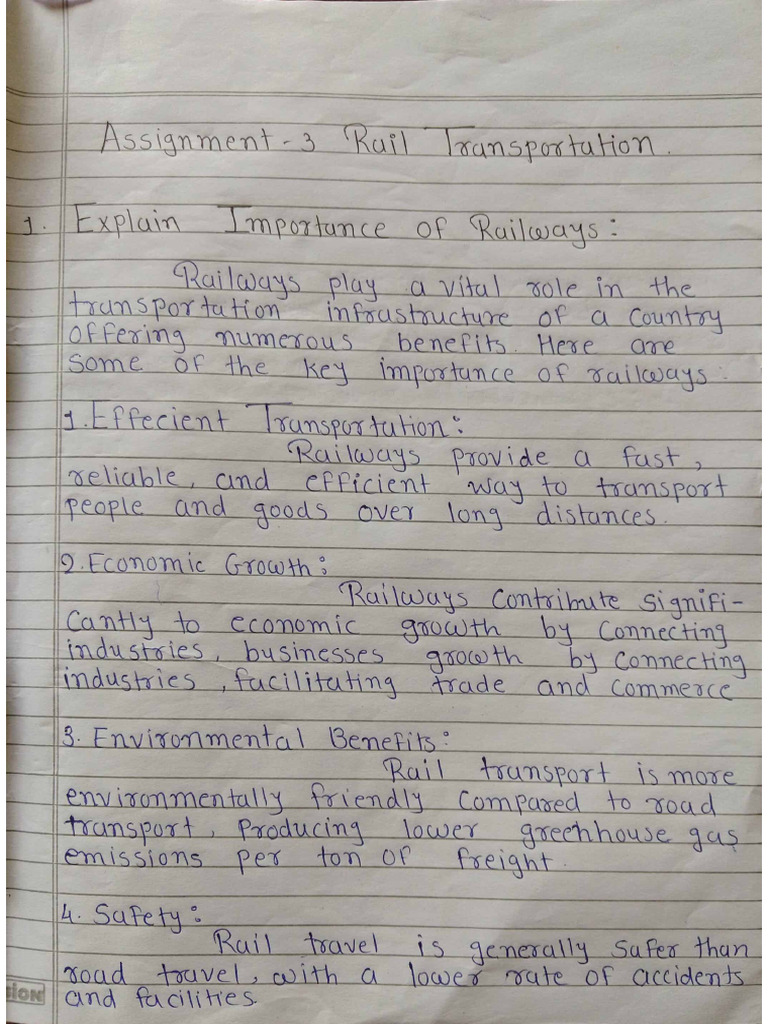 Assignment - 3 Rail Transportation.
1. Explain Importance of Railways:
Railways play a vital role in the
transportation infrastructure of a country
offering numerous benefits. Here are
some of the key importance of railways:
1. Effecient Transportation:
Railways provide a fast,
reliable, and efficient way to transport
people and goods over long distances.
2. Economic Growth:
Railways contribute signifi-
cantly to economic growth by connecting
industries, businesses growth by connecting
industries, facilitating trade and commerce
3. Environmental Benefits:
Rail transport is more
environmentally friendly compared to road
transport, producing lower greehhouse gas
emissions per ton of freight.
4. Safety:
Rail travel is generally safer than
road travel, with a lower rate of accidents
and facilities.